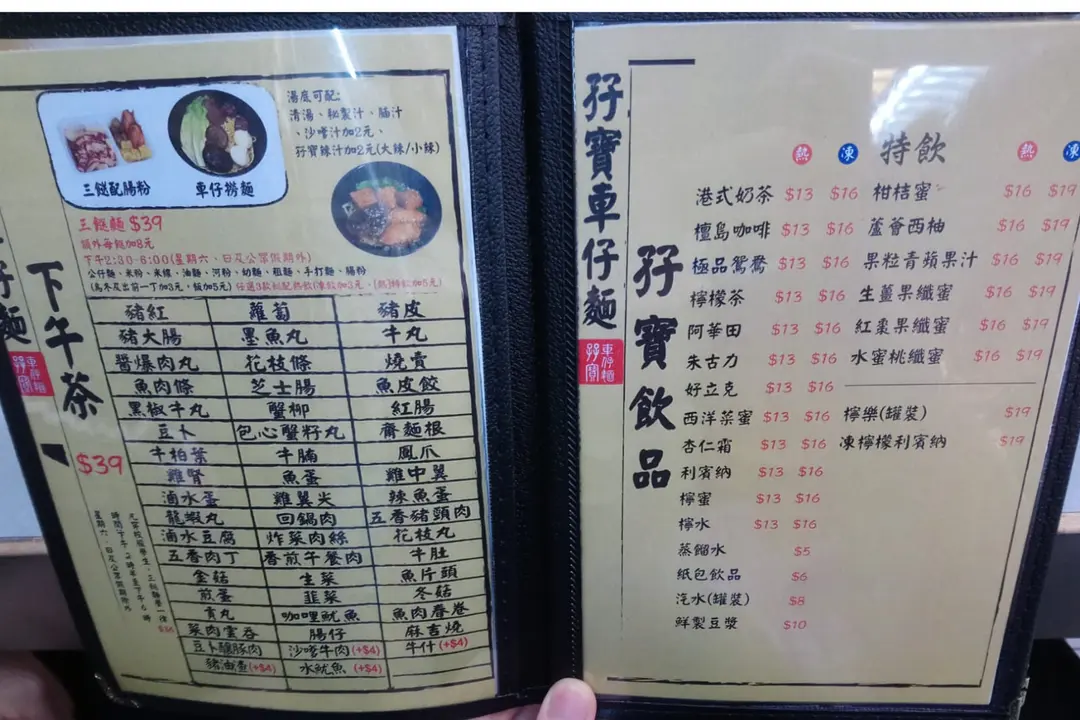 仔麵
車仔麵
孖寶
下午茶
$39
三餸配腸粉
車仔撈麵
湯底可配:
清湯、秘製汁、腩汁
、沙嗲汁加2元、
孖寶辣汁加2元(大辣/小辣)
三餸麵 $39
額外每餸加8元
下午2:30-6:00(星期六、日及公眾假期外)
公仔麵、米粉、米線、油麵、河粉、幼麵、粗麵、手打麵、腸粉
豬紅 蘿蔔 豬皮
豬大腸 墨魚丸 牛丸
醬爆肉丸 花枝條 燒賣
魚肉條 芝士腸 魚皮餃
黑椒牛丸 蟹柳 紅腸
豆卜 包心蟹籽丸 齋麵根
牛柏葉 牛腩 鳳爪
雞腎 魚蛋 雞中翼
滷水蛋 雞翼尖 辣魚蛋
龍蝦丸 回鍋肉 五香豬頸肉
滷水豆腐 炸菜肉絲 花枝丸
五香肉丁 香煎午餐肉 牛肚
金菇 生菜 魚片頭
煎蛋 韮菜 冬菇
貢丸 咖哩魷魚 魚肉春卷
菜肉雲吞 腸仔 麻吉燒
豆卜釀豚肉 沙嗲牛肉(+$4) 牛什(+$4)
豬油渣(+$4) 水魷魚 (+$4)
星期六、日及公眾假期除外
孖寶車仔麵
車仔麵
孖寶
孖寶飲品
熱 凍 特飲 熱 凍
港式奶茶 $13 $16 柑桔蜜 $16 $19
檀島咖啡 $13 $16 蘆薈西柚 $16 $19
極品鴛鴦 $13 $16 果粒青蘋果汁 $16 $19
檸檬茶 $13 $16 生薑果纖蜜 $16 $19
阿華田 $13 $16 紅棗果纖蜜 $16 $19
朱古力 $13 $16 水蜜桃纖蜜 $16 $19
好立克 $13 $16
西洋菜蜜 $13 $16 檸樂(罐裝) $19
杏仁霜 $13 $16 凍檸檬利賓納 $19
利賓納 $13 $16
檸蜜 $13 $16
檸水 $13 $16
蒸餾水 $5
紙包飲品 $6
汽水(罐裝) $8
鮮製豆漿 $10